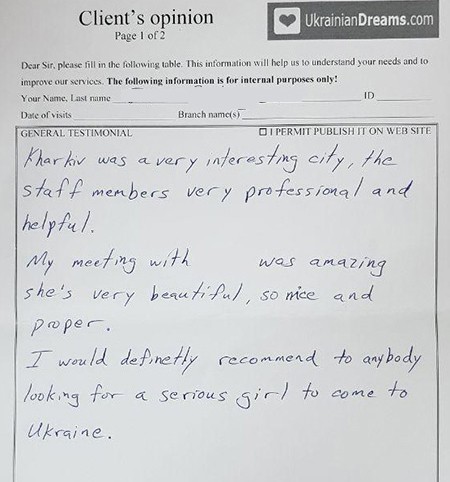 Client's opinion
Page 1 of 2
UkrainianDreams.com
Dear Sir, please fill in the following table. This information will help us to understand your needs and to
improve our services. The following information is for internal purposes only!
Your Name, Last name ID
Date of visits Branch name(s)
GENERAL TESTIMONIAL ☐ I PERMIT PUBLISH IT ON WEB SITE
Kharkiv was a very interesting city, the
staff members very professional and
helpful.
My meeting with was amazing
she's very beautiful, so nice and
proper.
I would definetly recommend to anybody
looking for a serious girl to come to
Ukraine.